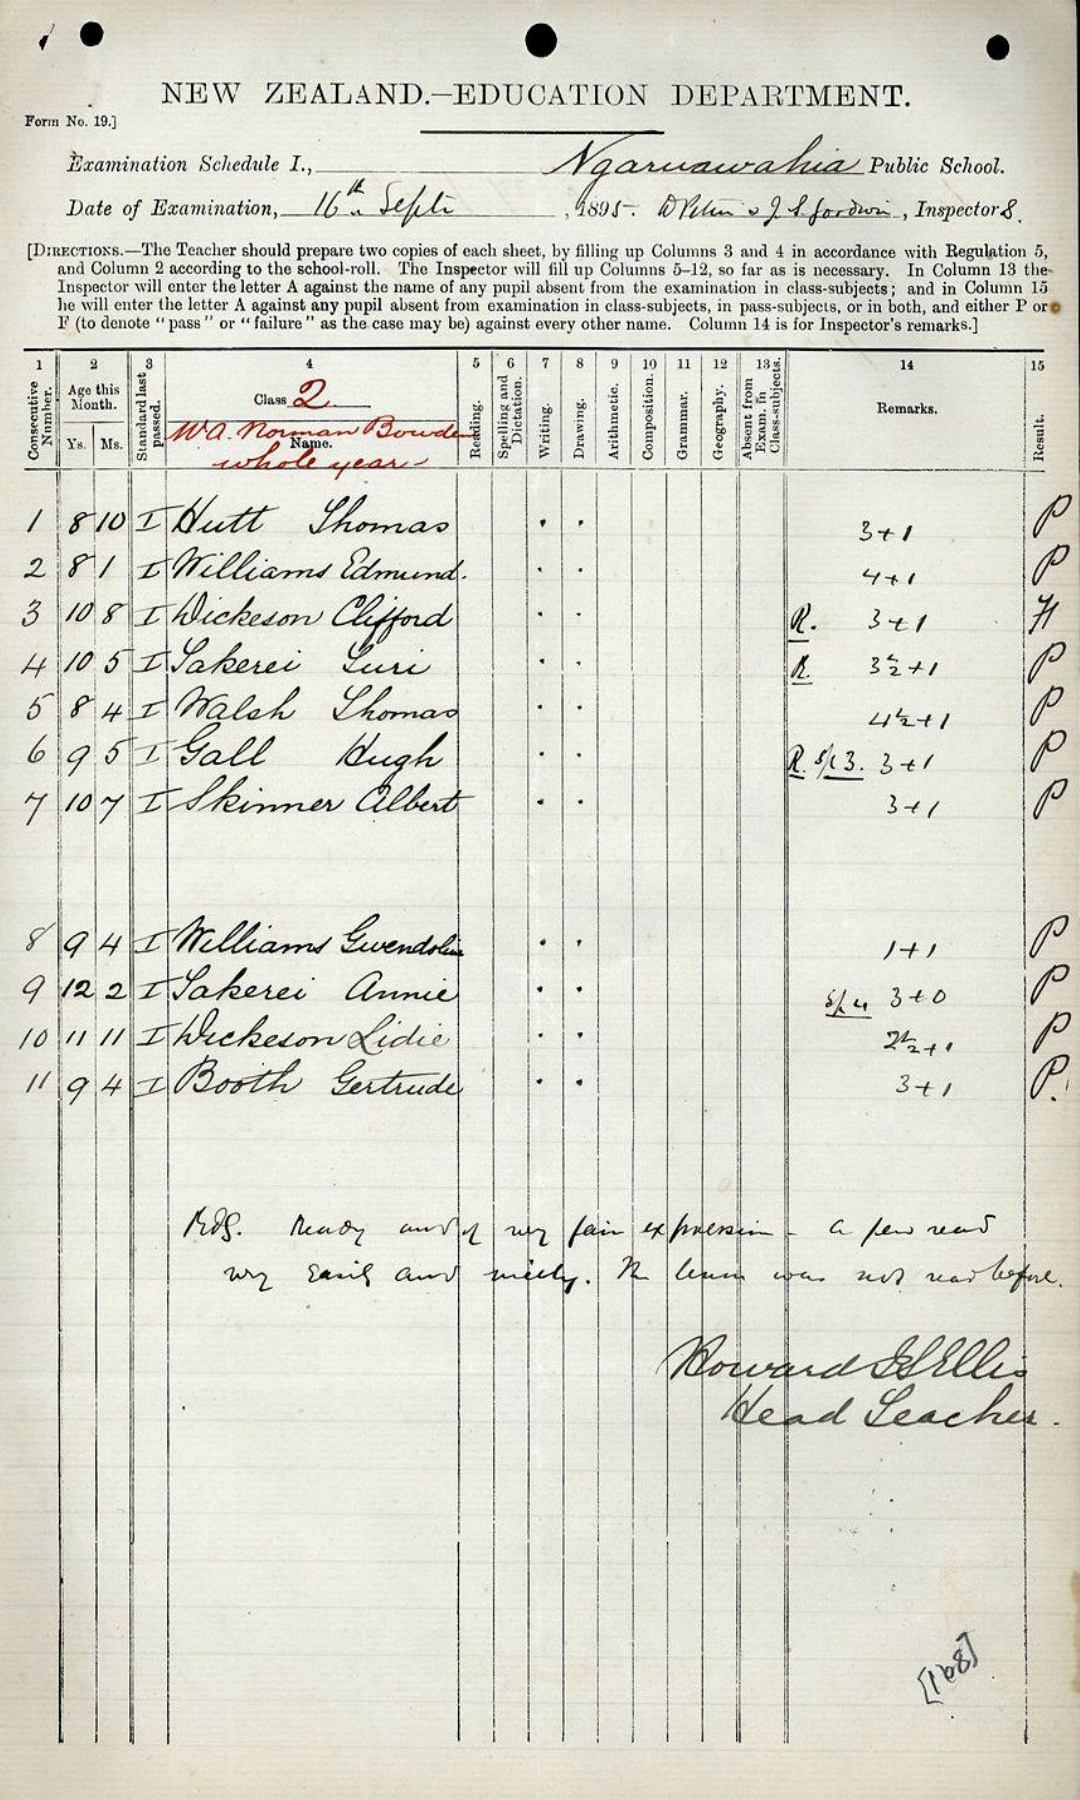 NEW ZEALAND.—EDUCATION DEPARTMENT.
Form No. 19.]
Examination Schedule I., Ngaruawahia Public School.
Date of Examination, 16th Septr, 1895. J. S. Goodwin, Inspectors.
[DIRECTIONS.—The Teacher should prepare two copies of each sheet, by filling up Columns 3 and 4 in accordance with Regulation 5,
and Column 2 according to the school-roll. The Inspector will fill up Columns 5–12, so far as is necessary. In Column 13 the
Inspector will enter the letter A against the name of any pupil absent from the examination in class-subjects; and in Column 15
he will enter the letter A against any pupil absent from examination in class-subjects, in pass-subjects, or in both, and either P or
F (to denote "pass" or "failure" as the case may be) against every other name. Column 14 is for Inspector's remarks.]
1 2 3 4 5 6 7 8 9 10 11 12 13 14 15
Consecutive Number. Age this Month. Ys. Ms. Standard last passed. Class 2 Name. Reading. Spelling and Dictation. Writing. Drawing. Arithmetic. Composition. Grammar. Geography. Absent from Exam. in Class-subjects. Remarks. Result.
W A. Norman Bowden
whole year
1 8 10 I Hutt Thomas . . 3+1 P
2 8 1 I Williams Edmund. . . 4+1 P
3 10 8 I Dickeson Clifford . . R. 3+1 F
4 10 5 I Takerei Turi . . R. 3½+1 P
5 8 4 I Walsh Thomas . . 4½+1 P
6 9 5 I Gall Hugh . . R. Sp 3. 3+1 P
7 10 7 I Skinner Albert . . 3+1 P
8 9 4 I Williams Gwendoline . . 1+1 P
9 12 2 I Takerei Annie . . Sp 4 3+0 P
10 11 11 I Dickeson Lidie . . 2½+1 P
11 9 4 I Booth Gertrude . . 3+1 P.
Rdg. Ready and of very fair expression - a few read
very easily and nicely. The lesson was not read before.
Howard Ellis
Head Teacher.
[168]